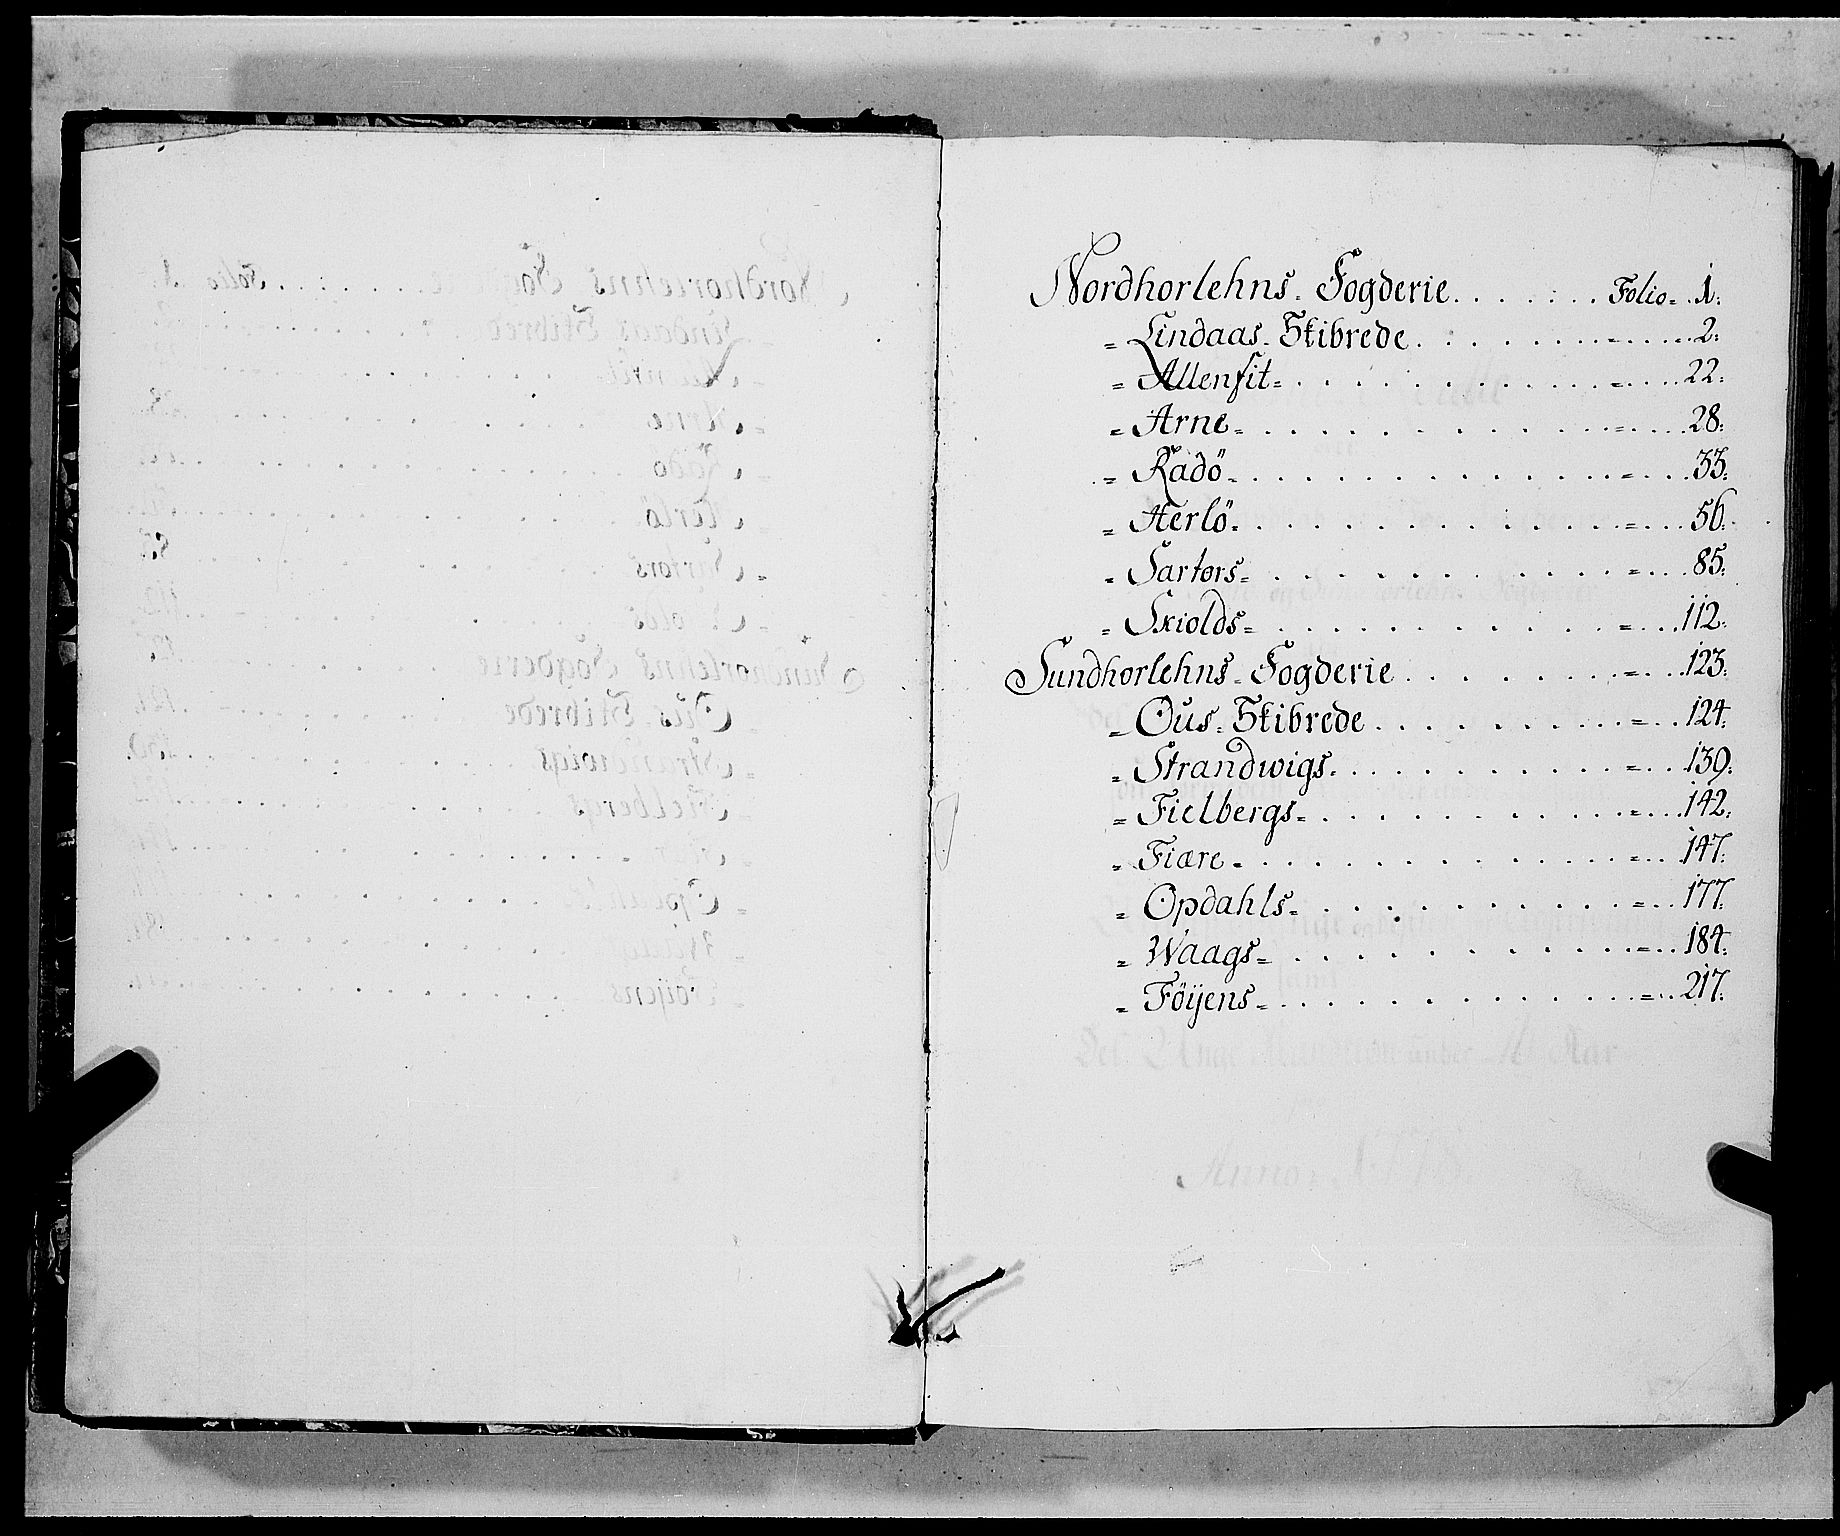 Nordhorlehns Fogderie. . . . . . . Folio. 1.
Lindaas Skibrede. . . . . . . . 2.
Allensit. . . . . . . . 22.
Arne. . . . . . . . 28.
Radö. . . . . . . . 33.
Herlö. . . . . . . . 56.
Sartors. . . . . . . . 85.
Skiolds. . . . . . . . 112.
Sundhorlehns Fogderie. . . . . . . . 123.
Ous Skibrede. . . . . . . . 124.
Strandwigs. . . . . . . . 139.
Fielbergs. . . . . . . . 142.
Fiære. . . . . . . . 147.
Opdahls. . . . . . . . 177.
Waags. . . . . . . . 184.
Föijens. . . . . . . . 217.